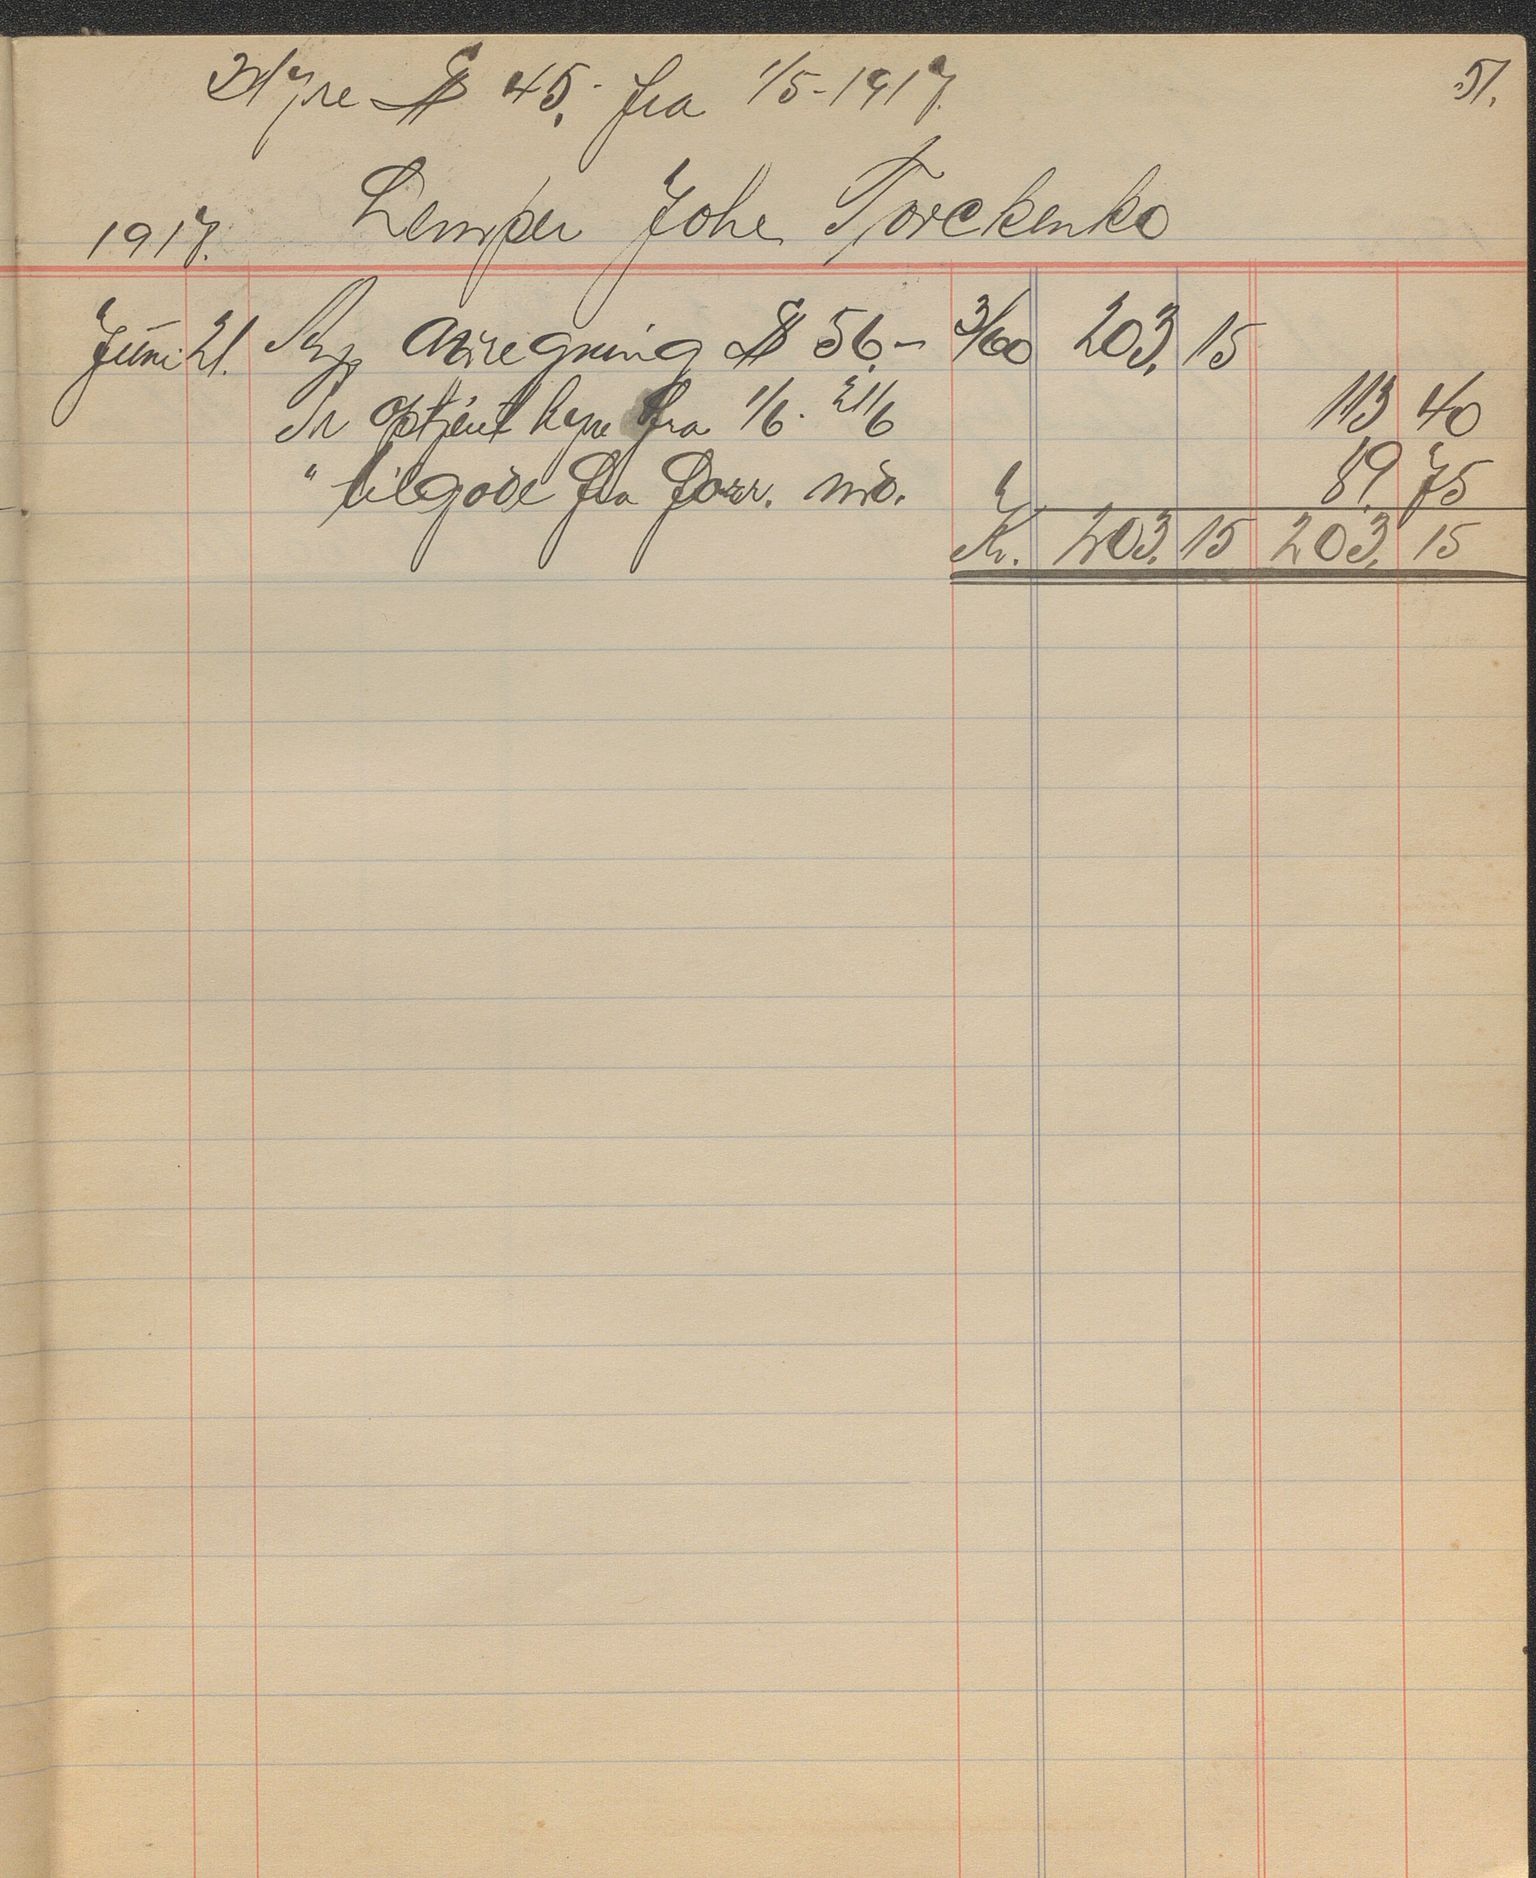 Hyre $ 45,- fra 1/5-1917.
51.
Lemper Johe Torckenko
1917.
Juni 21. avregning $ 56.- 3/60 203, 15
Pr optjent hyre fra 1/6 - 21/6 113 40
" tilgode fra forr. md. 89, 75
Kr. 203, 15 203, 15